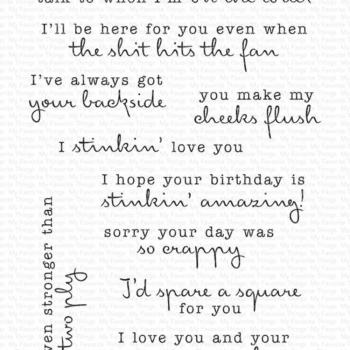 I'll be here for you even when
the shit hits the fan
I've always got
your backside
you make my
cheeks flush
I stinkin' love you
I hope your birthday is
stinkin' amazing!
sorry your day was
so crappy
stronger than
two ply
I'd spare a square
for you
I love you and your